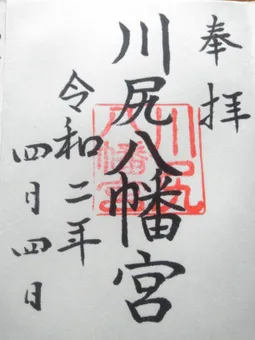 奉拝
川尻八幡宮
川尻八幡宮
令和二年
四月四日